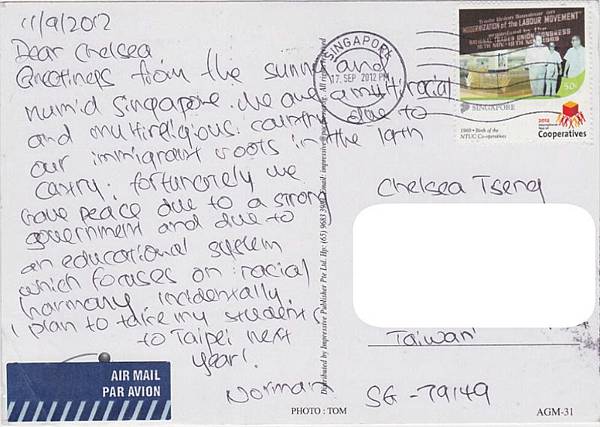 11/9/2012
Dear Chelsea
Greetings from the sunny and
humid Singapore. We are a multiracial
and multireligious country due to
our immigrant roots in the 19th
century. fortunately we
have peace due to a strong
government and due to
an educational system
which focuses on racial
harmony incidentally.
I plan to take my students
to Taipei next
year!
Norman
AIR MAIL
PAR AVION
SINGAPORE
17 SEP 2012 PM
Trade Union Seminar on
MODERNIZATION of the LABOUR MOVEMENT
organised by the
NATIONAL TRADES UNION CONGRESS
16TH NOV - 19TH NOV 1969
50c
SINGAPORE
1969 • Birth of the
NTUC Co-operatives
2012
International
Year of
Cooperatives
Distributed by Impressive Publisher Pte Ltd. Hp: (65) 9683 Email: All rights reserved
Chelsea Tseng
Taiwan
SG-79149
PHOTO : TOM
AGM-31